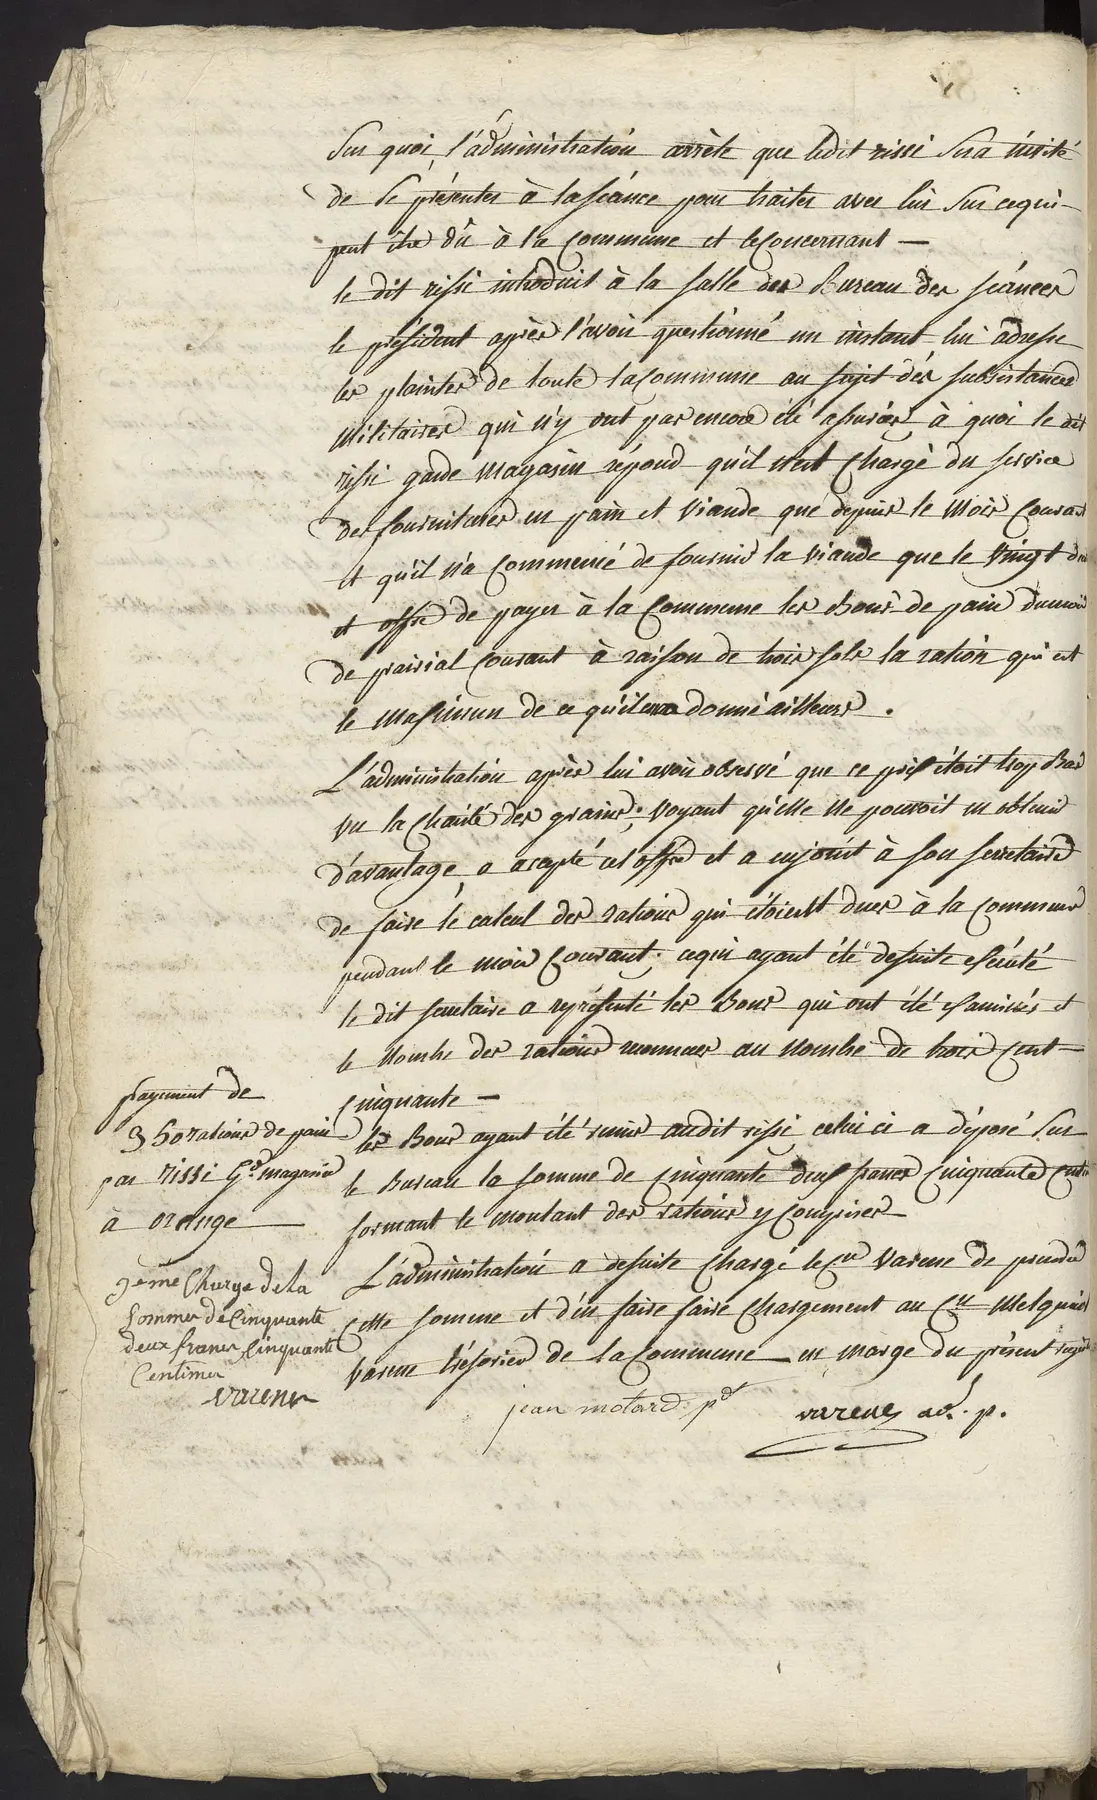 Sur quoi, l'administration arrête que ledit rissi sera invité
de se présenter à la séance pour traiter avec lui sur cequi
peut être dû à la commune et le concernant —
le dit rissi introduit à la salle des Bureau des séances
le président après l'avoir questionné un instant lui adresse
les plaintes de toute la commune au sujet dés subsistances
militaires qui n'y ont pas encore été assurées, à quoi le dit
rissi garde magasin répond qu'il n'est chargé du service
des fournitures en pain et viande que depuis le mois courant
et qu'il n'a commencé de fournir la viande que le vingt du
et offre de payer à la commune les Bons de pain du mois
de prairial courant à raison de trois sols la ration qui est
le maximum de ce qu'il en a donné ailleurs.
L'administration après lui avoir observé que ce prix étoit trop Bas
vu la charté des grains; voyant qu'elle ne pouvoit en obtenir
d'avantage, a accepté cet offre et a enjoint à son secretaire
de faire le calcul des rations qui étoient dues à la commune
pendant le mois courant; cequi ayant été desuite exécuté
le dit secretaire a représenté les Bons qui ont été examinés et
le nombre des rations reconnues au nombre de trois cent
cinquante —
les Bons ayant été remis audit rissi, celui ci a déposé sur
le Bureau la somme de cinquante deux francs cinquante cent.
formant le montant des rations y comprises
L'administration a desuite chargé le cen varene de prendre
cette somme et d'en faire faire chargement au Cen Melquior
varene trésorier de la commune en marge du présent regist
jean motard pdt
varene ad. p.
payement de
350 rations de pain
par rissi Ge magasin
à orange
9eme Charge de la
somme de Cinquante
deux francs Cinquante
Centimes
varene